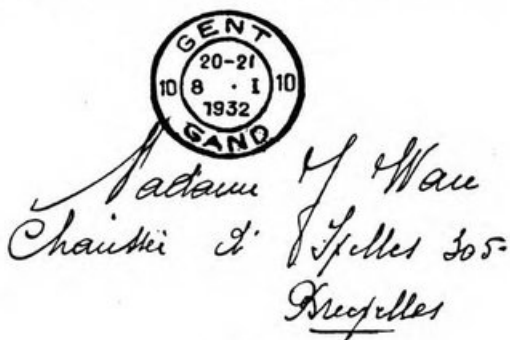 GENT
20-21
10 8 · I 10
1932
GAND
Madame J Wau
Chaussée d' Ixelles 305
Bruxelles